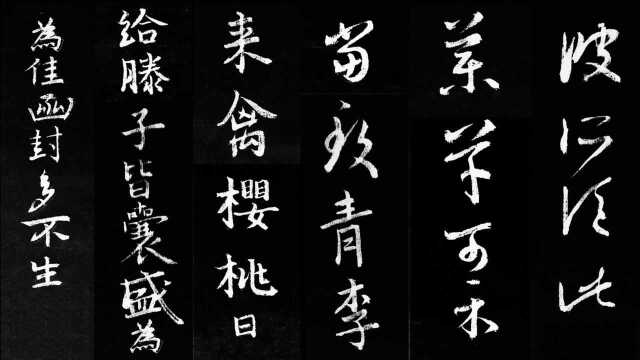 彼所須此
藥草可示
當致青李
来禽櫻桃日
給滕子皆囊盛為
為佳函封多不生